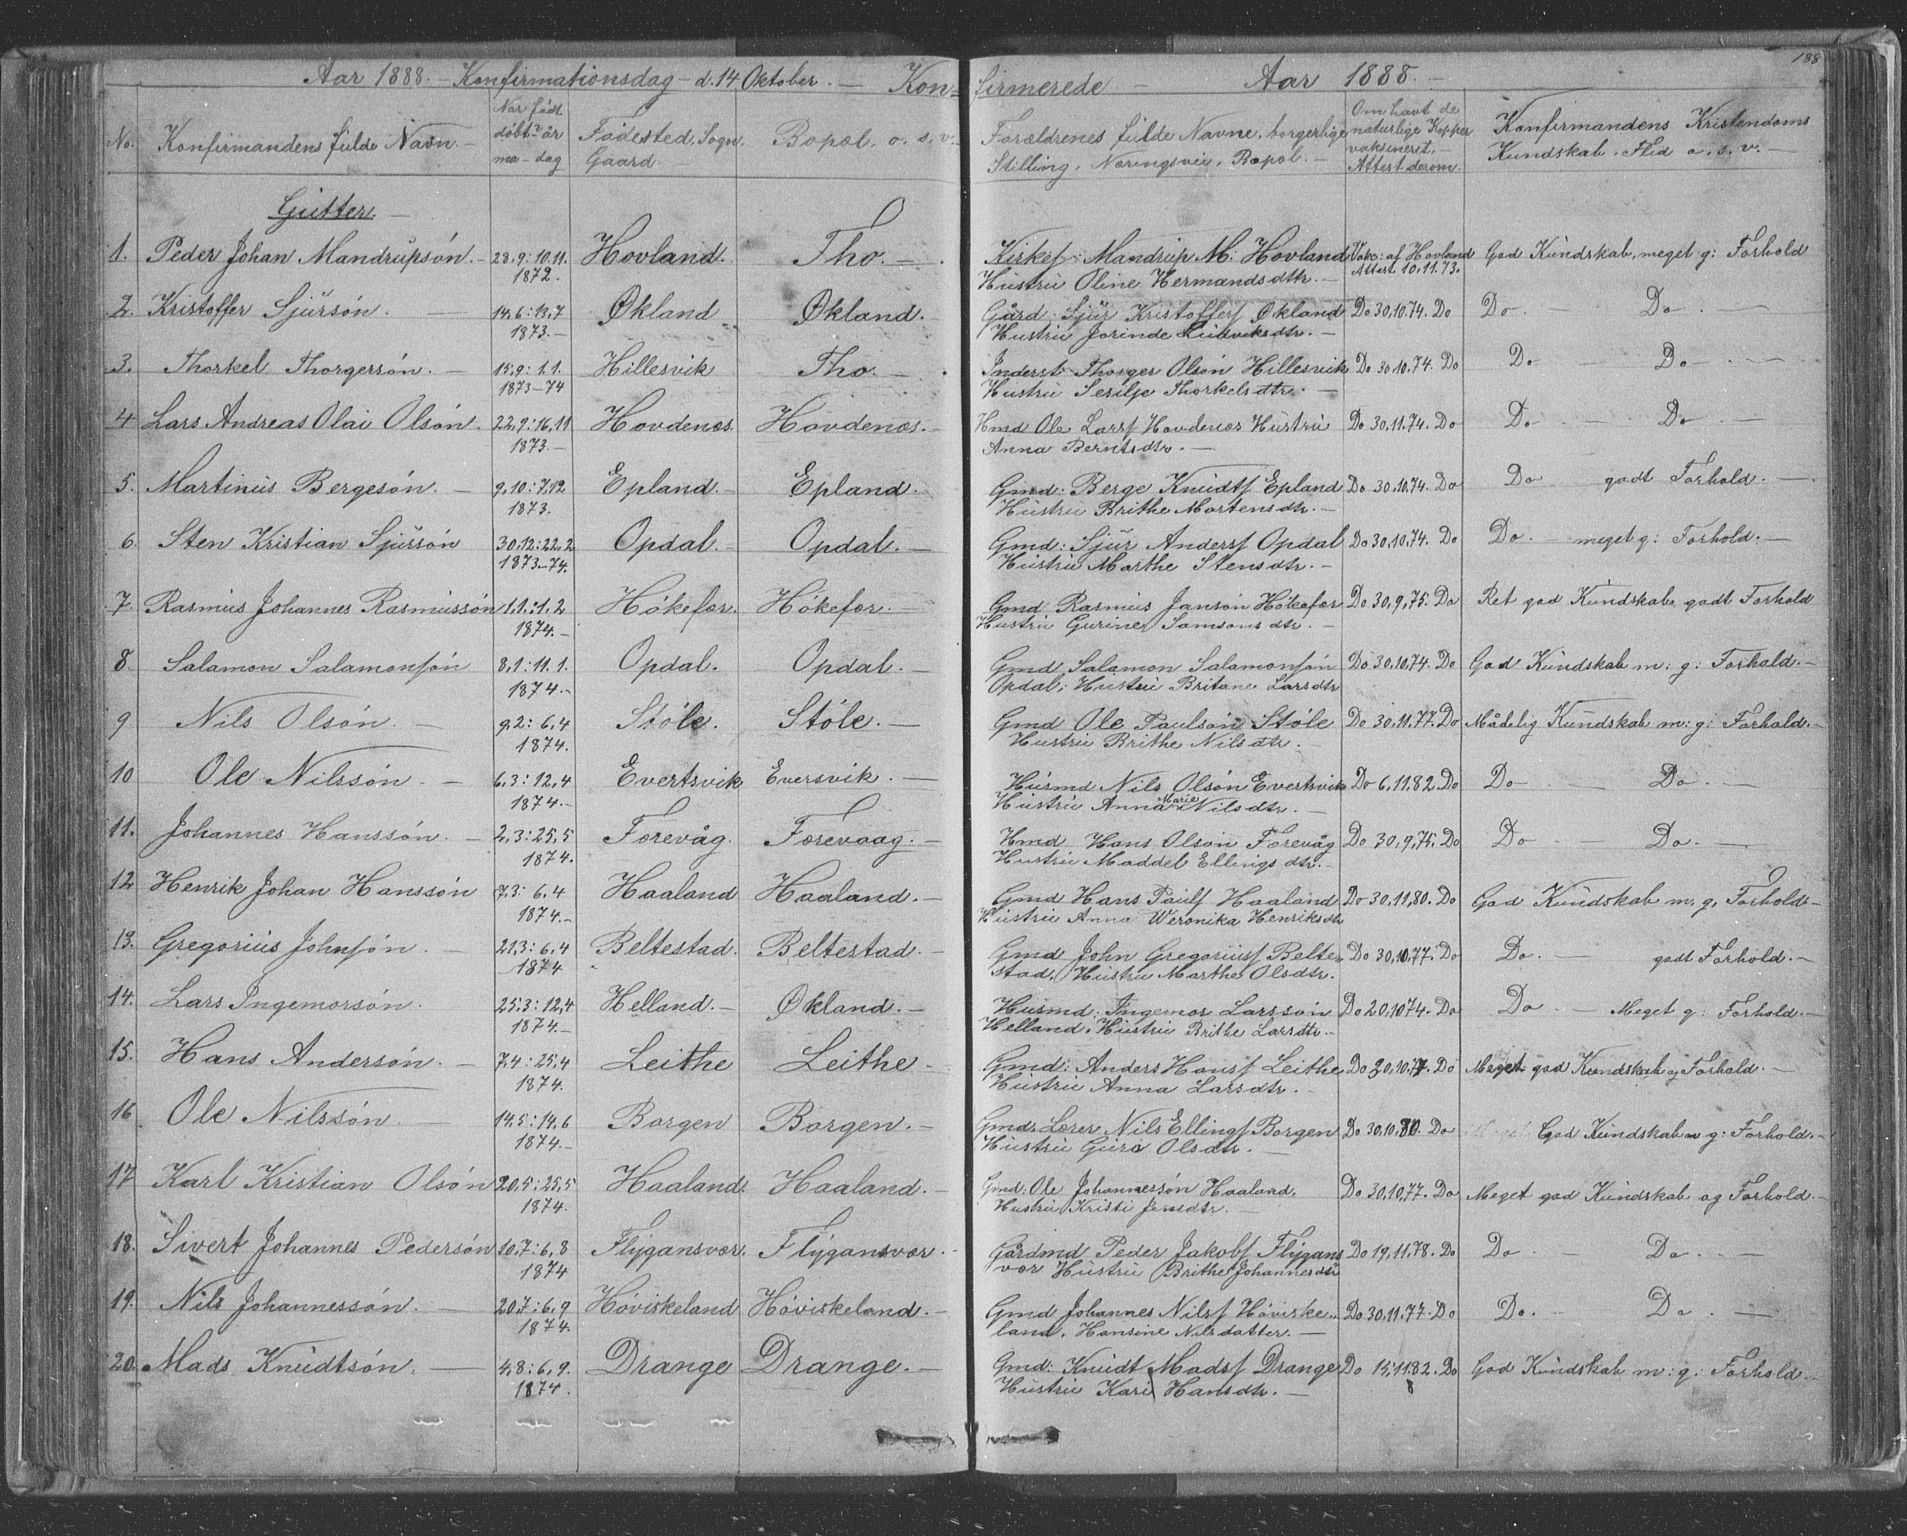 188
Aar 1888. – Konfirmationsdag – d. 14 Oktober. – Kon-firmerede – Aar 1888. –
No. Konfirmandens fulde Navn. – Nar født døbt år ma-dag Fødested, Sogn, Gaard. Bopæl, o. s. v. Forældrenes fulde Navne, borgerlige Stilling, Næringsvei, Bopæl. – Om havt de naturlige Kopper vaksineret, – Attest derom. Konfirmandens Kristendoms Kundskab, Flid o. s. v. –
Gutter. –
1. Peder Johan Mandrupsøn. – 28,9: 10,11. Hovland. Tho. – Kirkes: Mandrup M: Hovland Vaks: af Hovland God Kundskab, meget g: Forhold
1872. Hustru Oline Hermandsdtr. – Attest 10.11.73.
2. Kristoffer Sjursøn. – 14,6: 13,7 Økland Økland. Gård: Sjur Kristoffers Økland Do 30,10,74. Do Do – Do –
1873. – Hustru Jorinde Ludviksdtr. –
3. Thorkel Thorgersøn. – 15,9: 1.1. Hillesvik Tho. – Inderst Thorger Olsøn Hillesvik Do 30,10,74. Do Do – Do –
1873–74 Hustru Serilje Thorkelsdtr. –
4. Lars Andreas Olai Olsøn. 22,9: 16,11 Hovdenæs. Hovdenæs. – Hmd Ole Larss Hovdenæs Hustru Do 30,11,74. Do Do – Do –
1873. – Anna Berntsdtr. –
5. Martinus Bergesøn. – 9,10: 7,12 Epland. – Epland. Gmd: Berge Knudts Epland Do 30,10,74. Do Do godt Forhold. –
1873. Hustru Brithe Mortensdtr. –
6. Sten Kristian Sjursøn 30,12: 22,2 Opdal. – Opdal. – Gmd: Sjur Anderss Opdal Do 30,10,74. Do Do. – meget g: Forhold. –
1873–74. Hustru Marthe Stensdtr. –
7. Rasmus Johannes Rasmussøn 1,1: 1,2 Høkefær. Høkefær. – Gmd Rasmus Jansøn Høkefær Do 30,9,75. Do Ret god Kundskab godt Forhold
1874. – Hustru Gurine Samsonsdtr. –
8. Salamon Salamonsøn 8,1: 11.1. Opdal. Opdal. – Gmd Salamon Salamonsøn Do 30,10,74. Do God Kundskab m: g: Forhold. –
1874. – Opdal; Hustru Britane Larsdtr
9 Nils Olsøn. – 9,2: 6,4 Støle. Støle. – Gmd Ole Paulsøn Støle Do 30,11,77. Do Mådelig Kundskab m: g: Forhold. –
1874. Hustru Brithe Nilsdtr. –
10 Ole Nilssøn. – 6,3: 12,4 Evertsvik Eversvik. – Husmd Nils Olsøn Evertsvik Do 6,11,82. Do Do – Do –
1874. – Hustru Anna Marie Nilsdtr. –
11. Johannes Hanssøn. – 2,3: 25,5 Forevåg. Forevaag. – Hmd Hans Olsøn Forevåg Do 30,9,75. Do Do – Do. –
1874. Hustru Maddel Ellingsdtr. –
12 Henrik Johan Hanssøn 7,3: 6,4 Haaland Haaland. – Gmd Hans Pauls Haaland Do 30,11,80. Do God Kundskab m. g, Forhold –
1874. – Hustru Anna Weronika Henriksdtr
13. Gregorius Johnsøn. – 21,3: 6,4 Beltestad. Beltestad. – Gmd John Gregoriuss Belte- Do 30,10,77. Do Do. – godt Forhold. –
1874 stad, Hustru Marthe Olsdtr.
14. Lars Ingemorsøn. 25,3: 12,4 Helland. – Økland. – Husmd: Ingemor Larssøn Do 20,10,74. Do Do – Meget g: Forhold. –
1874. – Helland, Hustru Brithe Larsdtr. –
15. Hans Andersøn. – 7,4: 25,4 Leithe Leithe – Gmd: Anders Hanss Leithe Do 30,10,77. Do Meget god Kundskab og Forhold. –
1874. Hustru Anna Larsdtr. –
16 Ole Nilssøn. 14,5: 14,6 Borgen Borgen. – Gmd: Lærer Nils Ellings Borgen Do 30,10,80. Do God Kundskab m g: Forhold. –
1874. – Hustru Guro Olsdtr. –
17 Karl Kristian Olsøn 20,5: 25,5 Haaland. Haaland. – Gmd: Ole Johannessøn Haaland, Do 30,10,77. Do Meget god Kundskab og Forhold. –
1874. Hustru Kristi Jensdtr. –
18. Sivert Johannes Pedersøn 10,7: 6,8 Flygansvær. Flygansvær. – Gårdmd Peder Jakobs Flygans Do 19,11,78. Do Do – Do. –
1874 vær Hustru Brithe Johannesdtr
19. Nils Johannessøn. – 20,7: 6,9 Høviskeland Høviskeland. – Gmd Johannes Nilss Høviske- Do 30,11,77. Do Do. – Do. –
1874. land, Hansine Nilsdatter. –
20. Mads Knudtsøn. – 4,8: 6,9. Drange Drange. – Gmd: Knudt Madss Drange Do 15,11,82. Do God Kundskab m: g: Forhold. –
1874. Hustru Kari Hansdtr. –